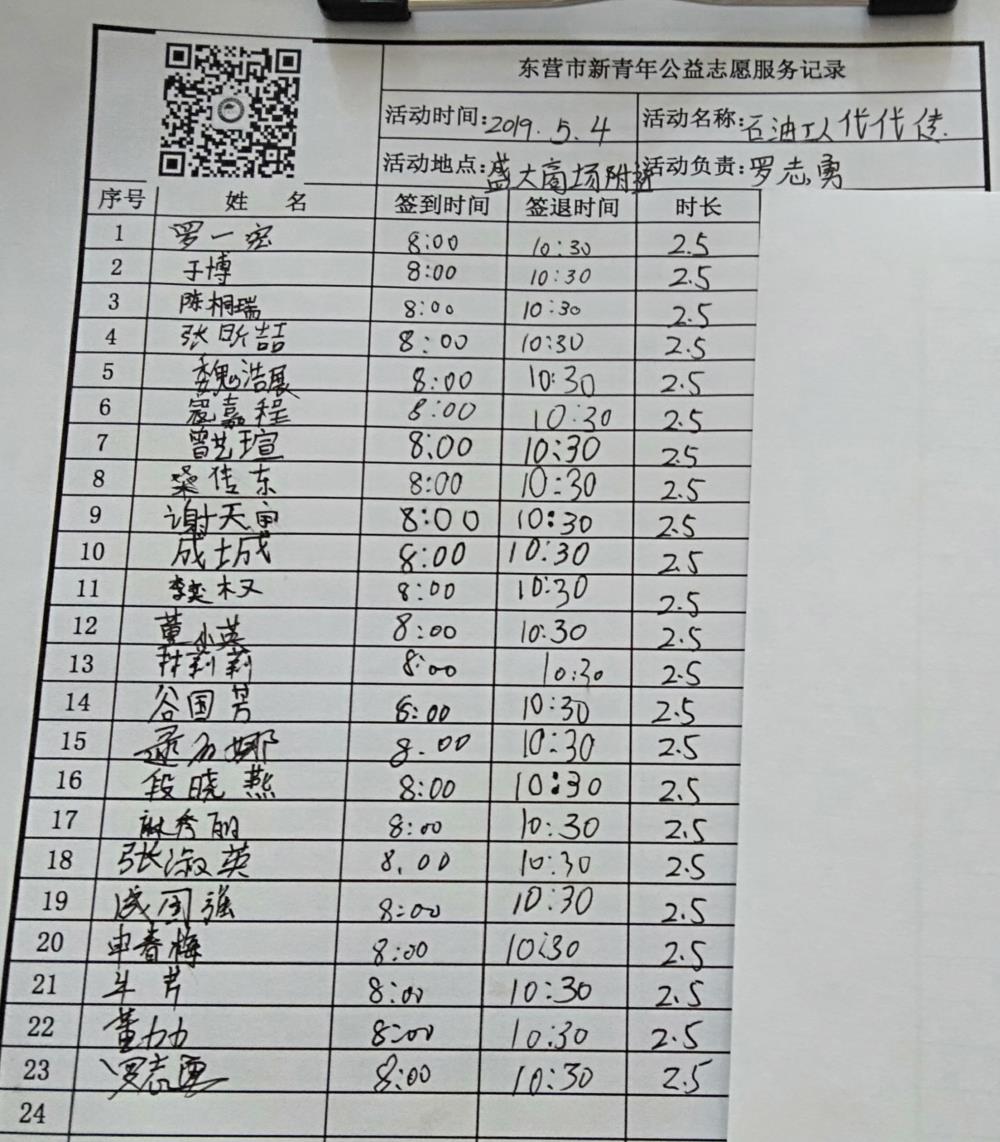 东营市新青年公益志愿服务记录
活动时间:2019.5.4 活动名称:石油工人代代传
活动地点:盛大商场附近 活动负责:罗志勇
序号 姓 名 签到时间 签退时间 时长
1 罗一宏 8:00 10:30 2.5
2 于博 8:00 10:30 2.5
3 陈桐瑞 8:00 10:30 2.5
4 张昕喆 8:00 10:30 2.5
5 魏浩展 8:00 10:30 2.5
6 寇嘉程 8:00 10:30 2.5
7 曾艺瑄 8:00 10:30 2.5
8 桑佳东 8:00 10:30 2.5
9 谢天 8:00 10:30 2.5
10 成土成 8:00 10:30 2.5
11 李奕权 8:00 10:30 2.5
12 董小英 8:00 10:30 2.5
13 莉莉 8:00 10:30 2.5
14 谷国芳 8:00 10:30 2.5
15 娜 8.00 10:30 2.5
16 段晓燕 8:00 10:30 2.5
17 麻秀丽 8:00 10:30 2.5
18 张淑英 8.00 10:30 2.5
19 成国强 8:00 10:30 2.5
20 申春梅 8:00 10:30 2.5
21 牟芹 8:00 10:30 2.5
22 董力力 8:00 10:30 2.5
23 罗志勇 8:00 10:30 2.5
24